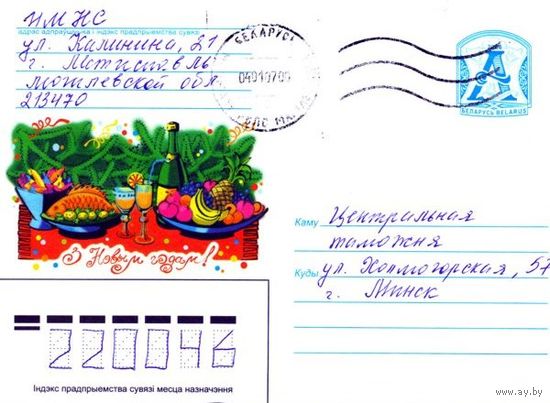 ИМНС
адрас адпраўшчыка і індэкс прадпрыемства сувязі
ул. Калинина, 21
г. Мстиславль
Могилевской обл.
213470
БЕЛАРУСЬ
040107
A
БЕЛАРУСЬ BELARUS
З Новым годам!
Каму Центральная
таможня
Куды ул. Холмогорская, 57
г. Минск
220046
Індэкс прадпрыемства сувязі месца назначэння
© www.ay.by